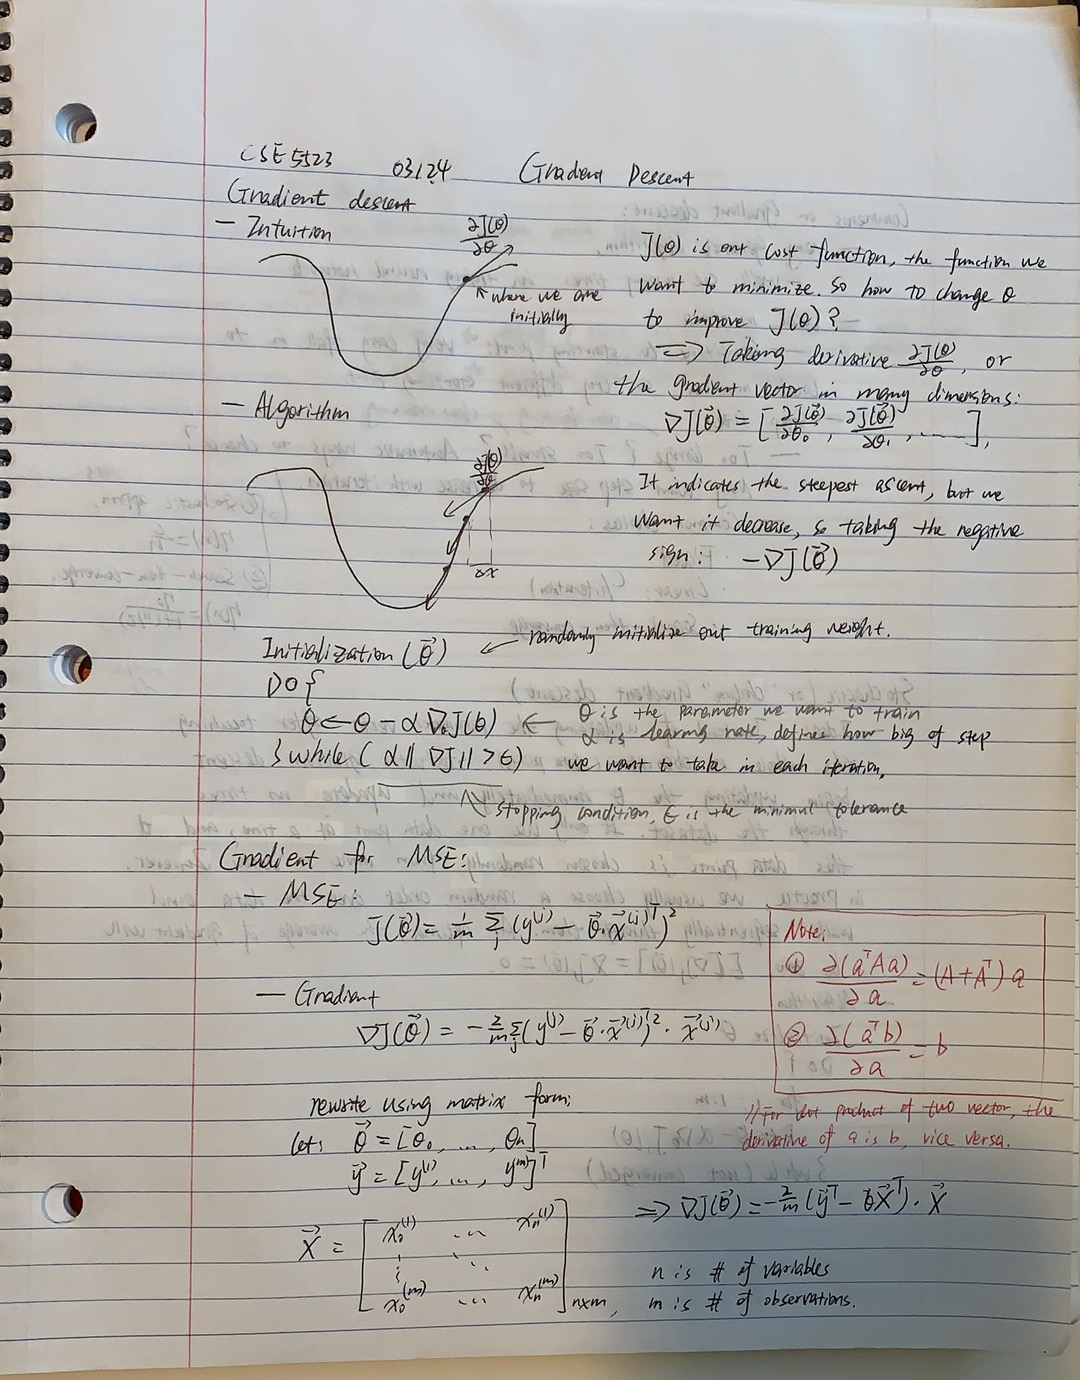 CSE 5523 03/24 Gradient Descent
Gradient descent
— Intuition
∂J(θ)/∂θ
where we are
initially
J(θ) is our cost function, the function we
want to minimize. So how to change θ
to improve J(θ)?
⇒ Taking derivative ∂J(θ)/∂θ, or
the gradient vector in many dimensions:
∇J(θ⃗) = [∂J(θ⃗)/∂θ₀, ∂J(θ⃗)/∂θ₁, ......],
— Algorithm
∂J(θ)/∂θ
Δx
It indicates the steepest ascent, but we
want it decrease, so taking the negative
sign: −∇J(θ⃗)
Initialization (θ⃗) ← randomly initialize out training weight.
DO {
θ ← θ − α∇θJ(θ) ← θ is the parameter we want to train
α is learning rate, defines how big of step
} while (α‖∇J‖ > ϵ) we want to take in each iteration.
stopping condition, ϵ is the minimul tolerance
Gradient for MSE:
— MSE:
J(θ⃗) = 1/m Σⱼ (y⁽ʲ⁾ − θ⃗·x⃗⁽ʲ⁾ᵀ)²
Note:
① ∂(aᵀAa)/∂a = (A+Aᵀ)a
② ∂(aᵀb)/∂a = b
// For dot product of two vector, the
derivative of a is b, vice versa.
— Gradient
∇J(θ⃗) = −2/m Σⱼ (y⁽ʲ⁾ − θ⃗·x⃗⁽ʲ⁾ᵀ)²·x⃗⁽ʲ⁾
rewrite using matrix form:
let: θ⃗ = [θ₀, ..., θₙ]
y⃗ = [y⁽¹⁾, ..., y⁽ᵐ⁾]ᵀ
⇒ ∇J(θ⃗) = −2/m (y⃗ᵀ − θ⃗X⃗ᵀ)·X⃗
X⃗ = [x₀⁽¹⁾ ... xₙ⁽¹⁾
⋮ ⋱
x₀⁽ᵐ⁾ ... xₙ⁽ᵐ⁾] n×m,
n is # of variables
m is # of observations.